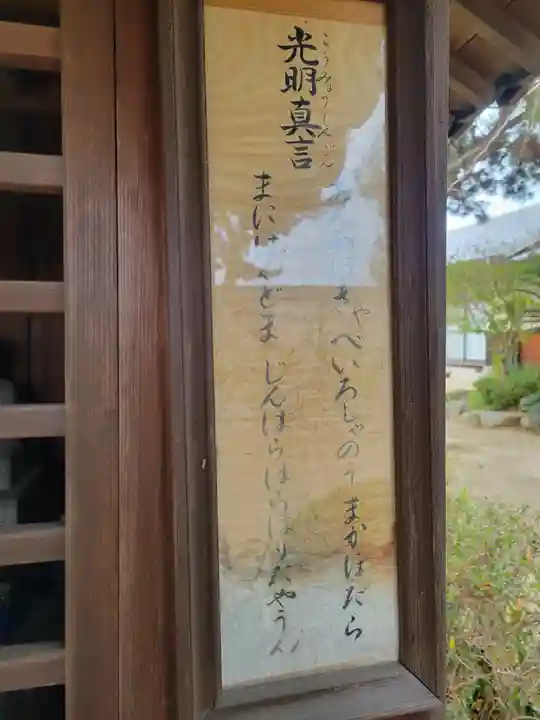 光明真言
こうみょうしんごん
きゃべいろしゃのう まかぼだら
まに はんどま じんばらはらばりたやうん